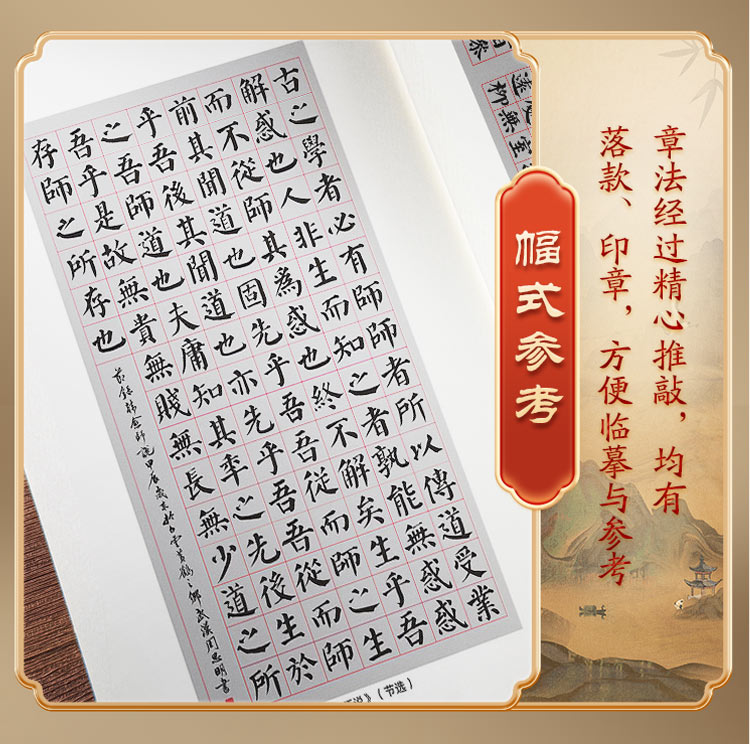 古之學者必有師師者所以傳道受業
解惑也人非生而知之者孰能無惑惑
而不從師其爲惑也終不解矣生乎吾
前其聞道也固先乎吾吾從而師之生
乎吾後其聞道也亦先乎吾吾從而師
之吾師道也夫庸知其年之先後生於
吾乎是故無貴無賤無長無少道之所
存師之所存也
節錄韓愈師說甲辰歲白雲黃鶴之鄉武漢周思明書
说》（节选）
幅式参考
章法经过精心推敲，均有
落款、印章，方便临摹与参考